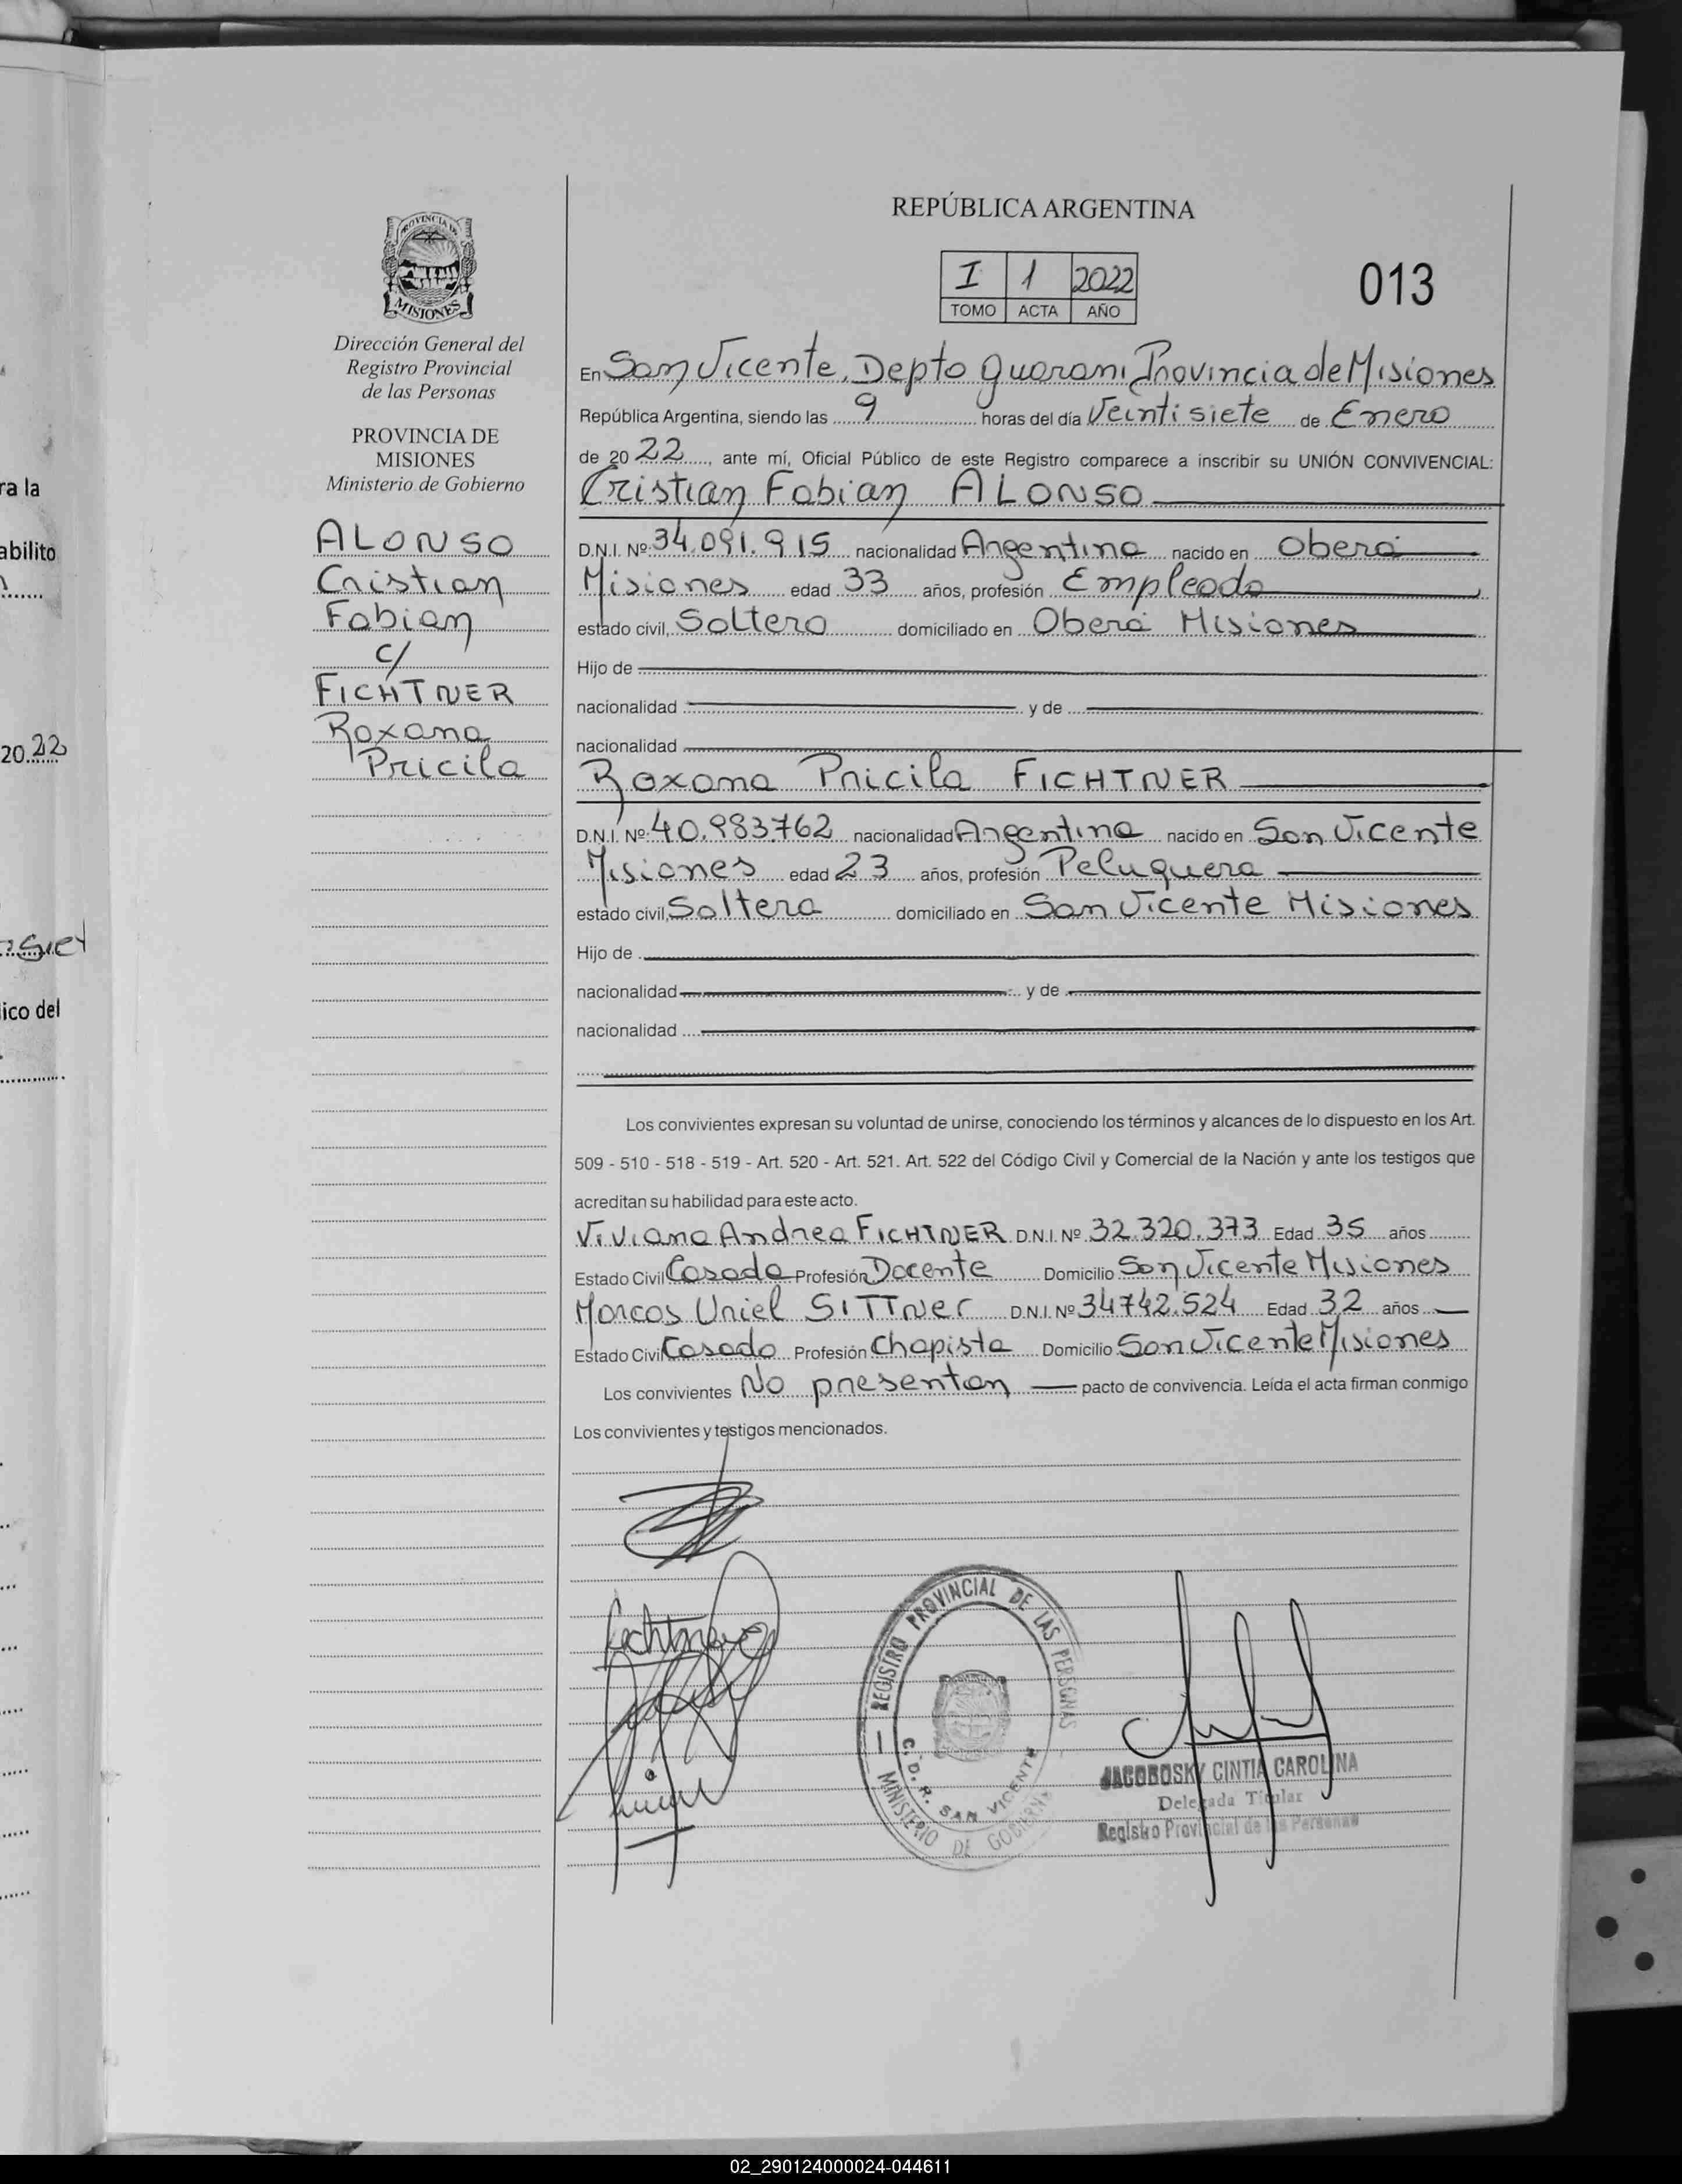 REPÚBLICA ARGENTINA
PROVINCIA DE
MISIONES
I 1 2022
TOMO ACTA AÑO
013
Dirección General del
Registro Provincial
de las Personas
PROVINCIA DE
MISIONES
Ministerio de Gobierno
ALONSO
Cristian
Fabian
c/
FICHTNER
Roxana
Pricila
En San Vicente, Depto Guarani Provincia de Misiones
República Argentina, siendo las 9 horas del día Veintisiete de Enero
de 2022, ante mí, Oficial Público de este Registro comparece a inscribir su UNIÓN CONVIVENCIAL:
Cristian Fabian ALONSO
D.N.I. Nº 34.091.915 nacionalidad Argentina nacido en Oberá
Misiones edad 33 años, profesión Empleado
estado civil, Soltero domiciliado en Oberá Misiones
Hijo de
nacionalidad y de
nacionalidad
Roxana Pricila FICHTNER
D.N.I. Nº 40.983.762 nacionalidad Argentina nacido en San Vicente
Misiones edad 23 años, profesión Peluquera
estado civil, Soltera domiciliado en San Vicente Misiones
Hijo de
nacionalidad y de
nacionalidad
Los convivientes expresan su voluntad de unirse, conociendo los términos y alcances de lo dispuesto en los Art.
509 - 510 - 518 - 519 - Art. 520 - Art. 521. Art. 522 del Código Civil y Comercial de la Nación y ante los testigos que
acreditan su habilidad para este acto.
Viviana Andrea FICHTNER D.N.I. Nº 32.320.373 Edad 35 años
Estado Civil Casada Profesión Docente Domicilio San Vicente Misiones
Marcos Uriel SITTNer D.N.I. Nº 34742.524 Edad 32 años
Estado Civil Casado Profesión Chapista Domicilio San Vicente Misiones
Los convivientes No presentan pacto de convivencia. Leída el acta firman conmigo
Los convivientes y testigos mencionados.
REGISTRO PROVINCIAL DE LAS PERSONAS
C. D. R. SAN VICENTE
MINISTERIO DE GOBIERNO
JACOBOSKY CINTIA CAROLINA
Delegada Titular
Registro Provincial de las Personas
ra la
abilito
2022
ico del
02_290124000024-044611